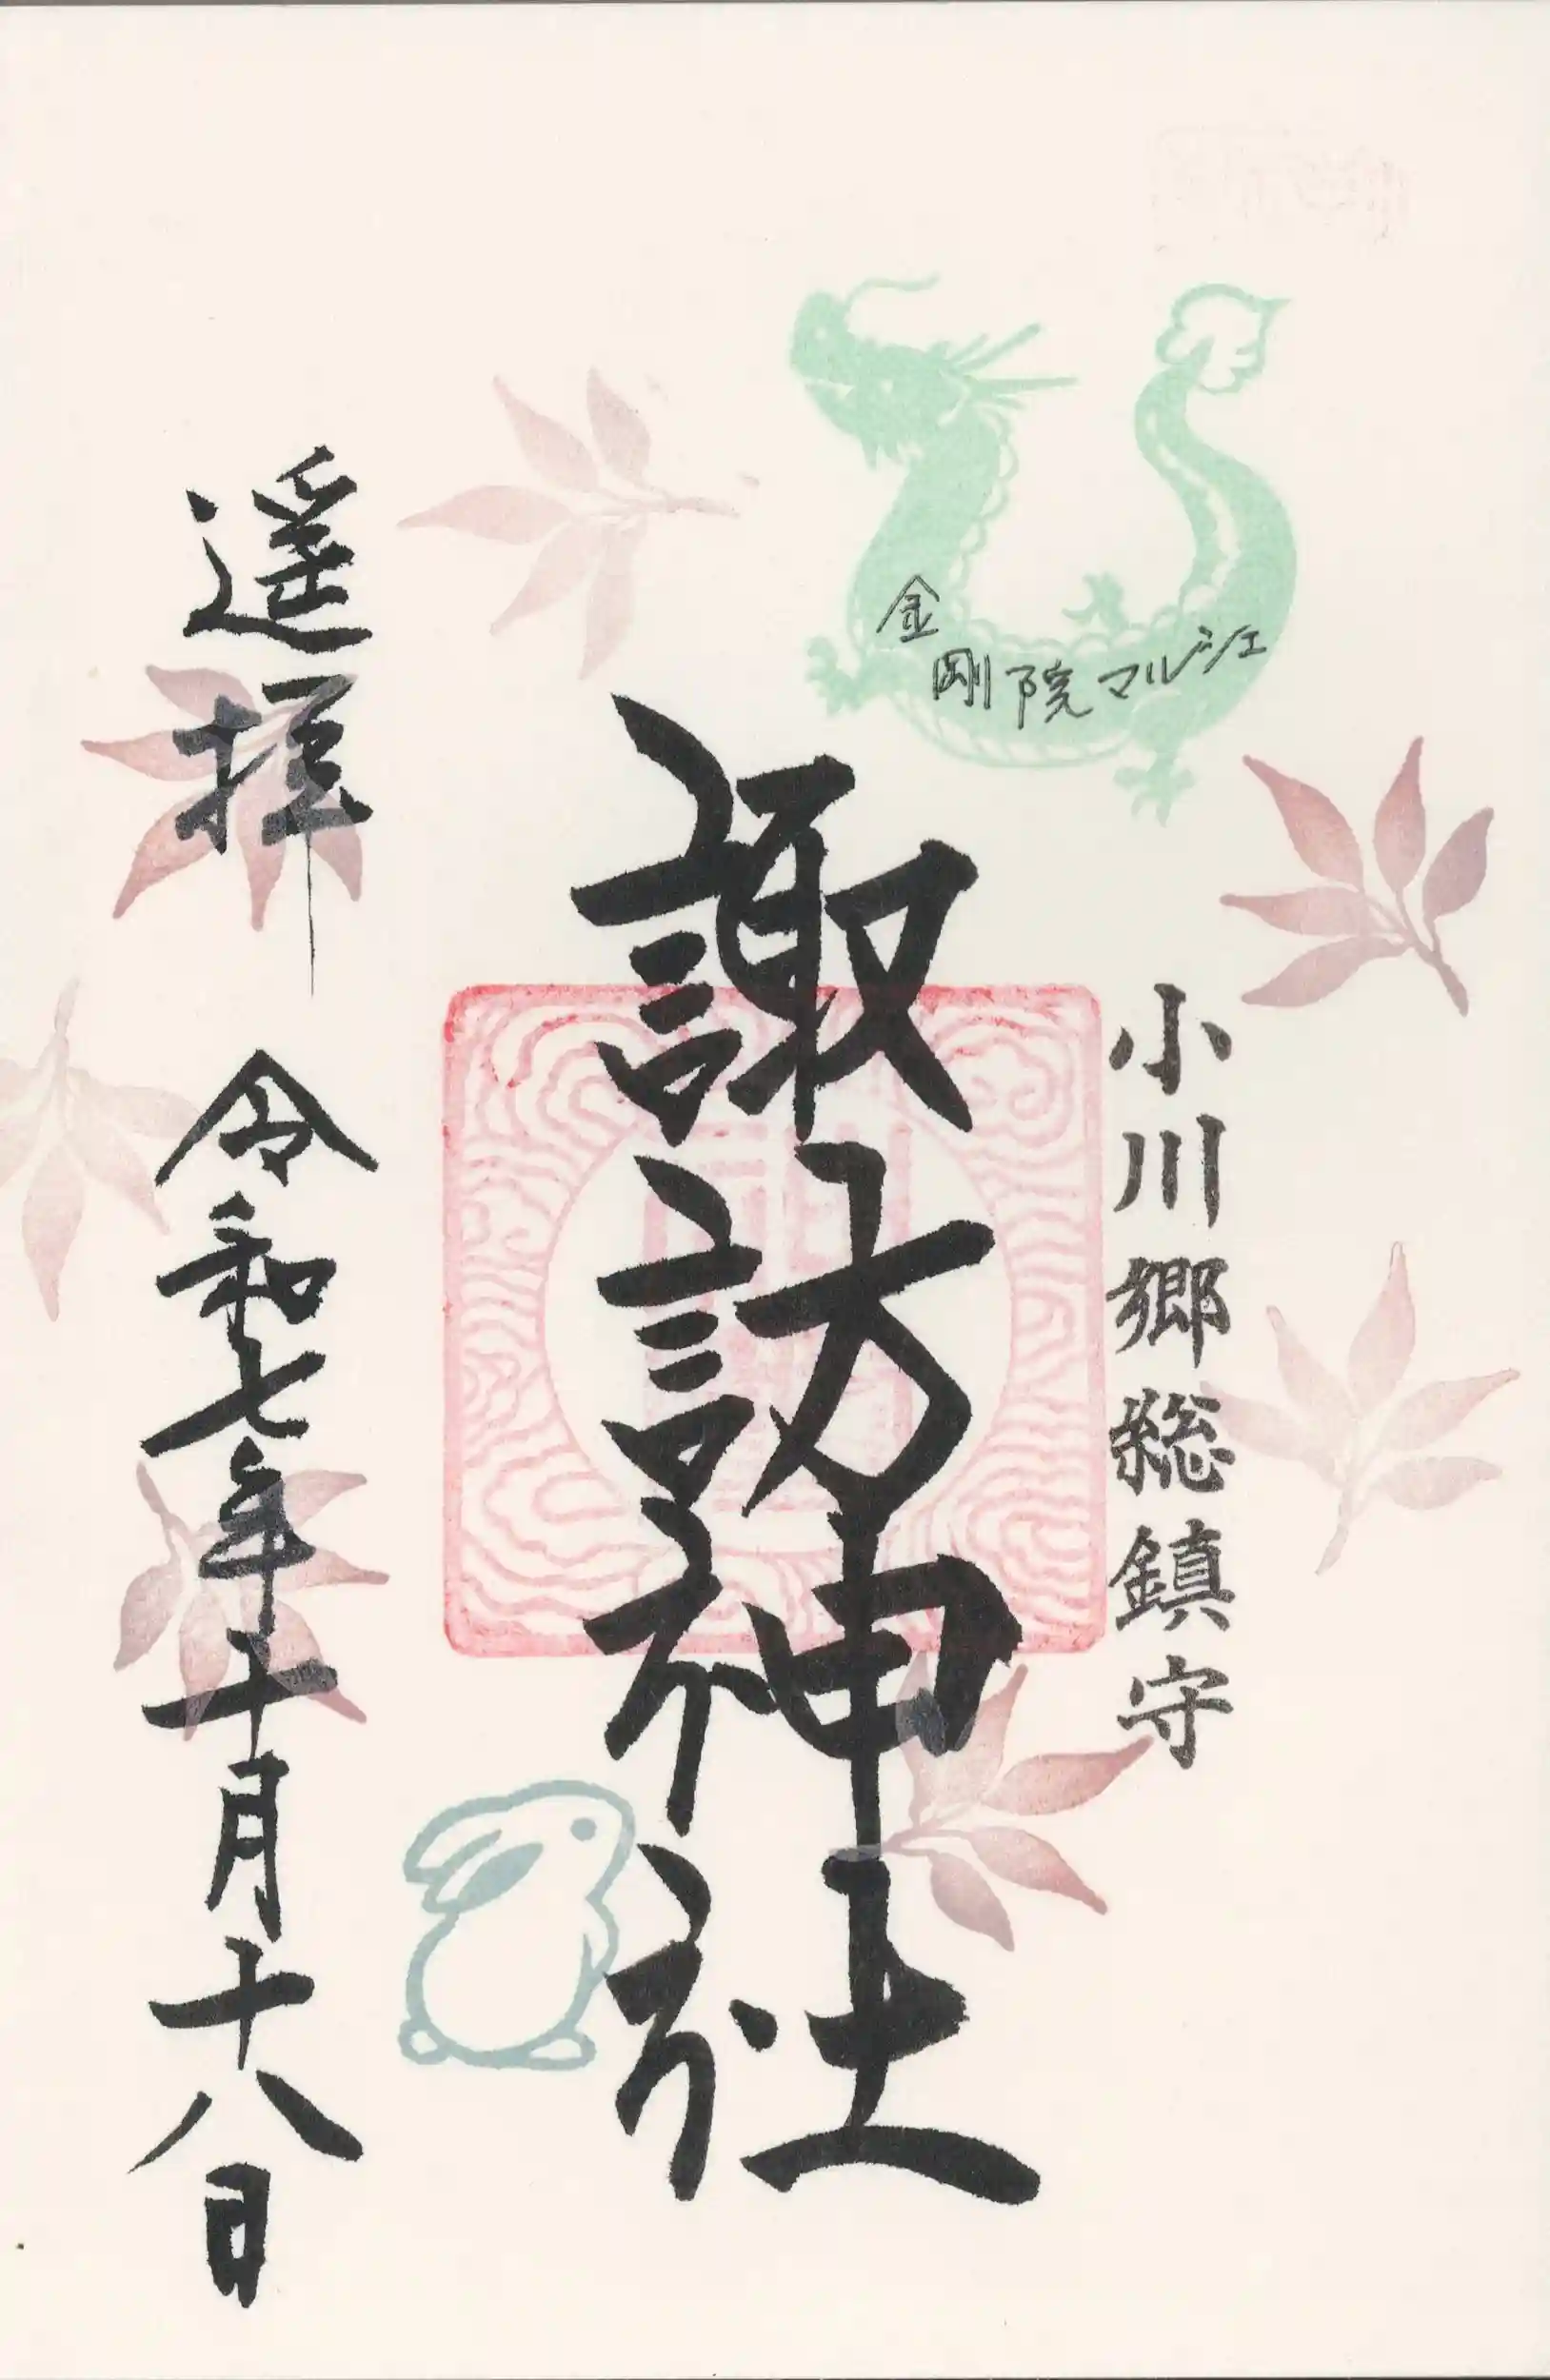 金剛院マルシェ
小川郷総鎮守
諏訪神社
遥拝 令和七年十月十八日